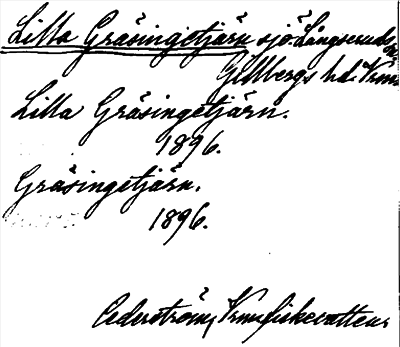 Lilla Gräsingetjärn sjö. Långseruds
Gillbergs hd. Vrml
Lilla Gräsingetjärn.
1896.
Gräsingetjärn.
1896.
Cederström, Vrml fiskevatten